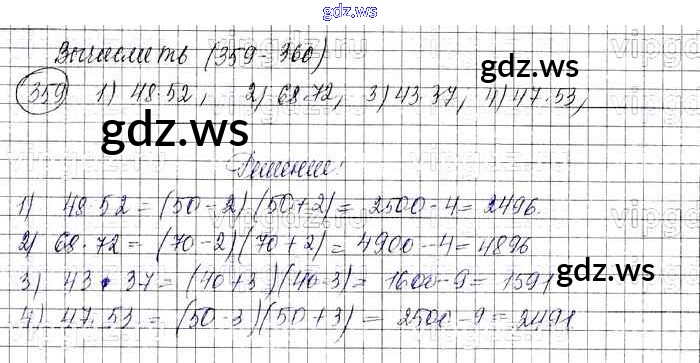 gdz.ws
Вычислить (359-360)
359 1) 48·52, 2) 68·72, 3) 43·37, 4) 47·53,
gdz.ws
gdz.ws
Решение:
1) 48·52 = (50-2)(50+2) = 2500-4 = 2496.
2) 68·72 = (70-2)(70+2) = 4900-4 = 4896
3) 43·37 = (40+3)(40-3) = 1600-9 = 1591
gdz.ws
4) 47·53 = (50-3)(50+3) = 2500-9 = 2491
gdz.ws